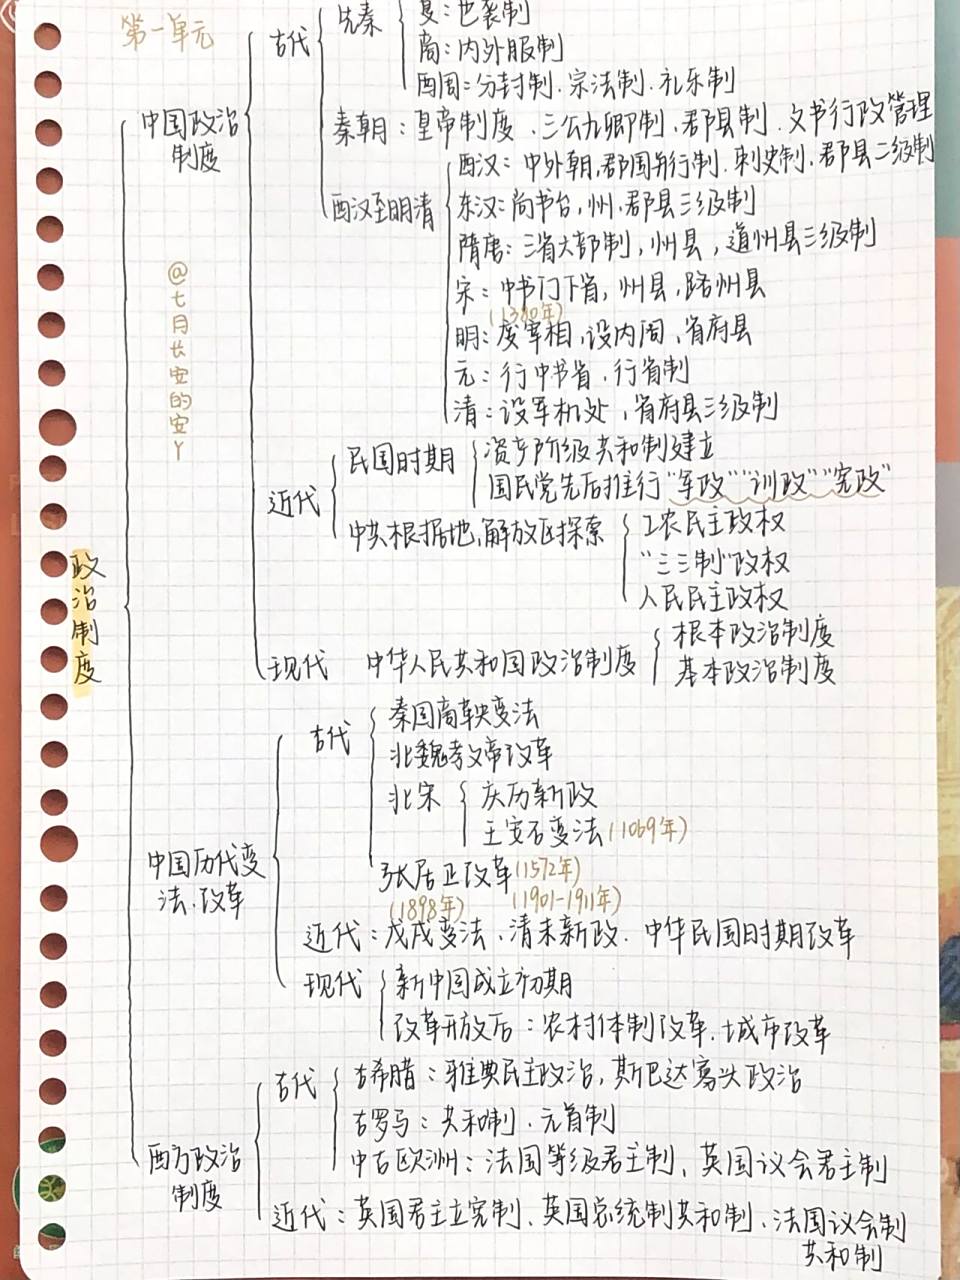 第一单元
政治制度
@七月长安的安丫
中国政治
制度
古代
先秦
夏：世袭制
商：内外服制
西周：分封制、宗法制、礼乐制
秦朝：皇帝制度、三公九卿制、郡县制、文书行政管理
西汉至明清
西汉：中外朝，郡国并行制、刺史制、郡县二级制
东汉：尚书台，州、郡县三级制
隋唐：三省六部制，州县，道州县三级制
宋：中书门下省，州县，路州县
(1380年)
明：废宰相，设内阁，省府县
元：行中书省、行省制
清：设军机处，省府县三级制
近代
民国时期
资产阶级共和制建立
国民党先后推行“军政”“训政”“宪政”
中共根据地、解放区探索
工农民主政权
“三三制”政权
人民民主政权
现代
中华人民共和国政治制度
根本政治制度
基本政治制度
中国历代变
法、改革
古代
秦国商鞅变法
北魏孝文帝改革
北宋
庆历新政
王安石变法(1069年)
张居正改革(1572年)
(1898年) (1901-1911年)
近代：戊戌变法、清末新政、中华民国时期改革
现代
新中国成立初期
改革开放后：农村体制改革、城市改革
西方政治
制度
古代
古希腊：雅典民主政治，斯巴达寡头政治
古罗马：共和制、元首制
中古欧洲：法国等级君主制、英国议会君主制
近代：英国君主立宪制、英国总统制共和制、法国议会制
共和制